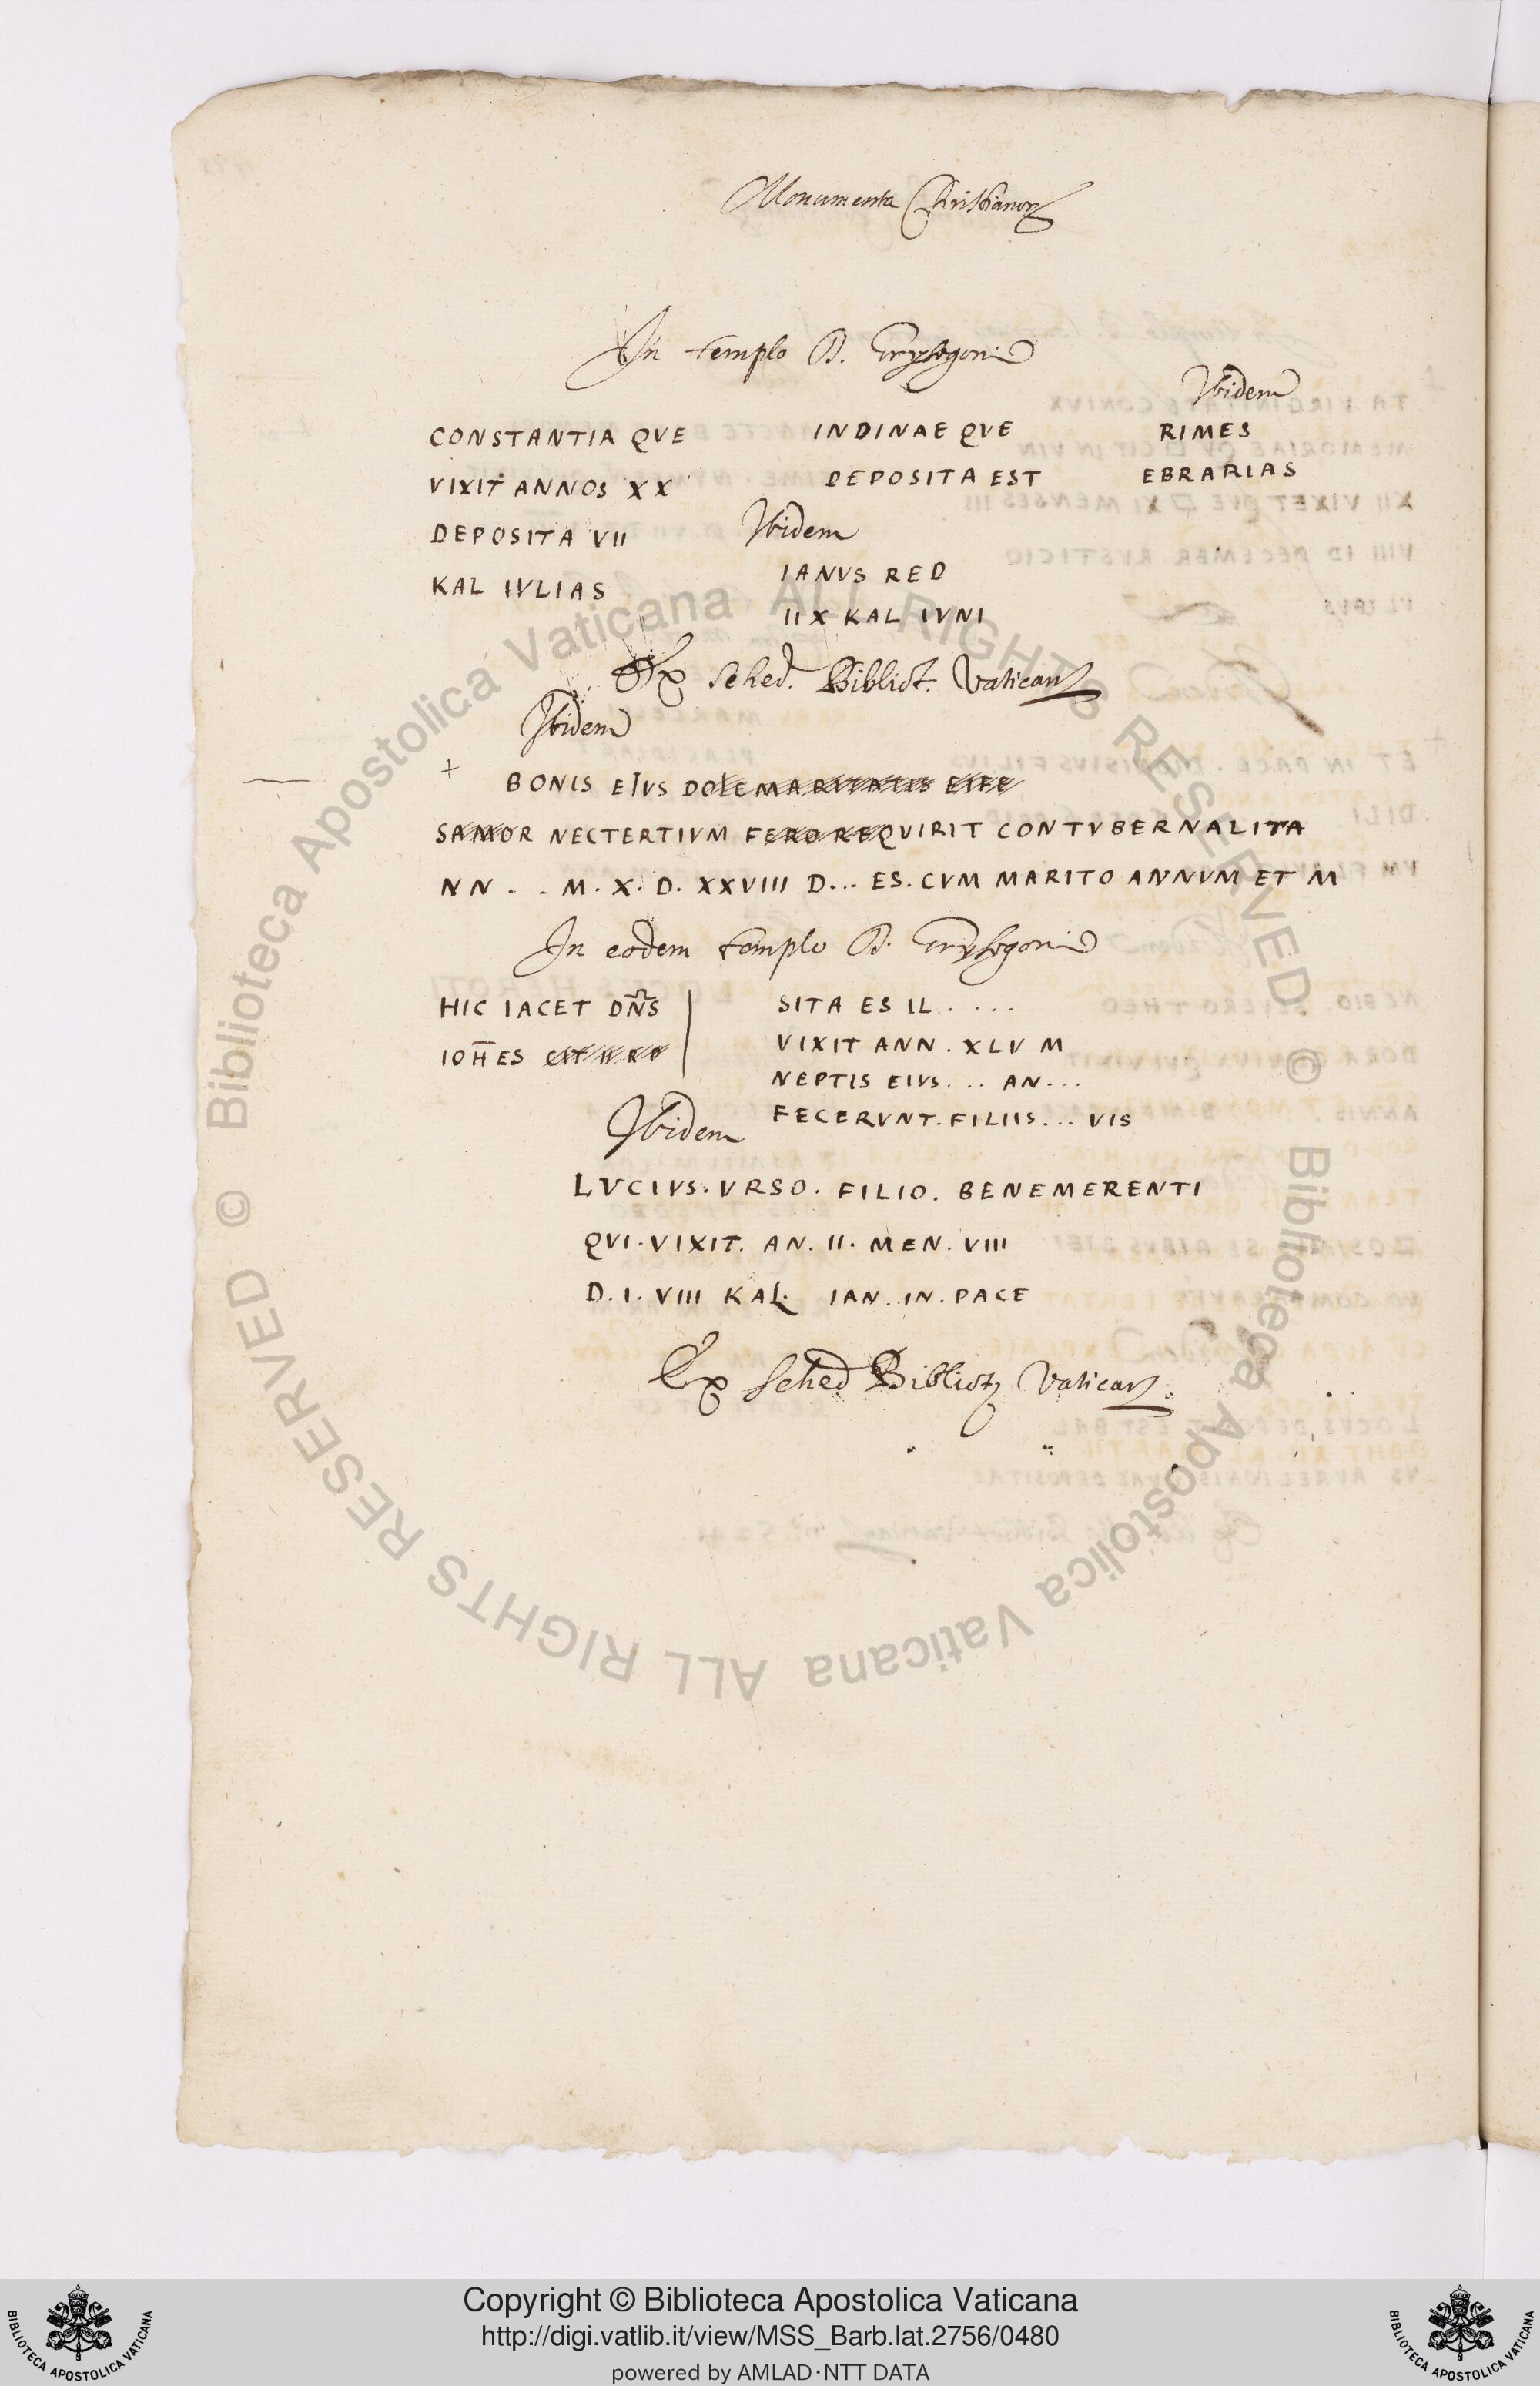 Monumenta Christianor
In templo D. Grysogoni
Ibidem
CONSTANTIA QVE
VIXIT ANNOS XX
DEPOSITA VII
KAL IVLIAS
INDINAE QVE
DEPOSITA EST
RIMES
EBRARIAS
Ibidem
IANVS RED
IIX KAL IVNI
Ex Sched. Bibliot. Vatican
Ibidem
+ BONIS EIVS
NECTERTIVM QVIRIT CONTVBERNALITA
NN . . M. X. D. XXVIII D... ES. CVM MARITO ANNVM ET M
In eodem templo D. Grysogoni
HIC IACET DN̄S
IOH̄ES
SITA ES IL . . . .
VIXIT ANN. XLV M
NEPTIS EIVS... AN...
FECERVNT. FILIIS... VIS
Ibidem
LVCIVS. VRSO. FILIO. BENEMERENTI
QVI. VIXIT. AN. II. MEN. VIII
D. I. VIII KAL. IAN. IN. PACE
Ex Sched Bibliot Vatican
© Biblioteca Apostolica Vaticana ALL RIGHTS RESERVED
© Biblioteca Apostolica Vaticana ALL RIGHTS RESERVED
Copyright © Biblioteca Apostolica Vaticana
http://digi.vatlib.it/view/MSS_Barb.lat.2756/0480
powered by AMLAD·NTT DATA
BIBLIOTECA APOSTOLICA VATICANA
BIBLIOTECA APOSTOLICA VATICANA